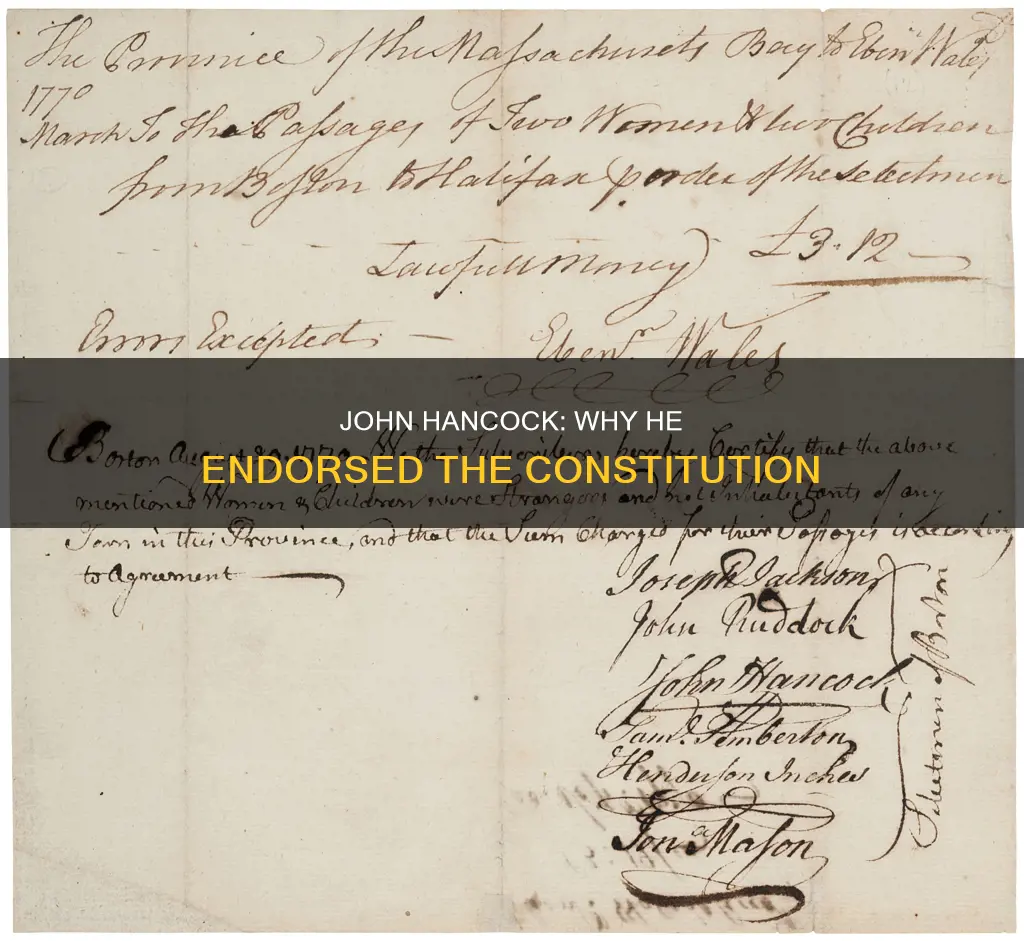 The Province of the Massachusets Bay to Eben.r Wales
1770
March To the Passages of Two Women & two Children
from Boston to Halifax p order of the Selectmen
Lawfull Money) £3.12
Errors Excepted
Eben.r Wales
JOHN HANCOCK: WHY HE
Boston August 29. 1770. We the Subscribers hereby Certify that the above
ENDORSED THE CONSTITUTION
mentioned Women & Children were Strangers and not Inhabitants of any
Town in this Province, and that the Sum Charged for their Passages is according
to Agreement
Joseph Jackson
John Ruddock
John Hancock
Sam.l Pemberton
Henderson Inches
Jon.a Mason
Selectmen of Boston